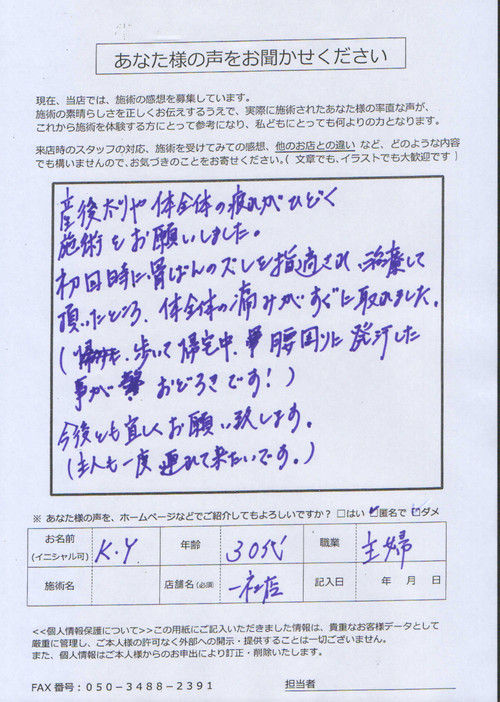 あなた様の声をお聞かせください
現在、当店では、施術の感想を募集しています。
施術の素晴らしさを正しくお伝えするうえで、実際に施術されたあなた様の率直な声が、
これから施術を体験する方にとって参考になり、私どもにとっても何よりの力となります。
来店時のスタッフの対応、施術を受けてみての感想、他のお店との違い など、どのような内容
でも構いませんので、お気づきのことをお寄せください。( 文章でも、イラストでも大歓迎です )
産後太りや体全体の疲れがひどく
施術をお願いしました。
初回時に、骨ばんのズレを指摘され、治療して
頂いたところ、体全体の痛みがすぐに取れました。
( 歩いて帰宅中、腰回りに発汗した
事が おどろきです! )
今後とも宜しくお願い致します。
(主人も一度連れて来たいです。)
※ あなた様の声を、ホームページなどでご紹介してもよろしいですか? □はい ☑匿名で ☑ダメ
お名前 K.Y 年齢 30代 職業 主婦
(イニシャル可)
施術名 店舗名(必須) 一社店 記入日 年 月 日
<<個人情報保護について>>この用紙にご記入いただきました情報は、貴重なお客様データとして
厳重に管理し、ご本人様の許可なく外部への開示・提供することは一切ございません。
また、個人情報はご本人様からのお申出により訂正・削除いたします。
FAX 番号：050－3488－2391 担当者